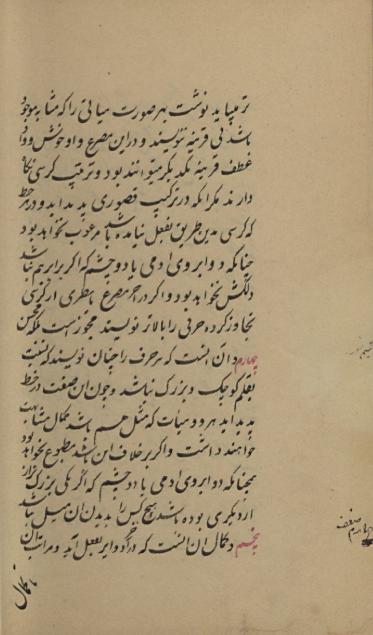 تر میباید نوشت بهر صورت میانی را که مشابه موجود
باشد بی قرینه ننویسند و در این مصرع واو خوش و واو
عطف قرینه یکدیگر میتوانند بود و ترتیب کرسی نگاه
دارند مگر آنکه در ترکیب قصوری پدید آید و در هر خط
که کرسی بدین طریق بفعل نیامده باشد مرغوب نخواهد بود
چنانکه دو ابروی آدمی یا دو چشم که اگر برابر هم نباشد
دلکش نخواهد بود و اگر در آخر مصرع یا سطری از کرسی
تجاوز کرده حرفی را بالاتر نویسند مجوز است بلکه مستحسن
چهارم آن است که هر حرف را چنان نویسند که نسبت
بقلم کوچک و بزرگ نباشد و چون این صفت در خط
پدید آید هر دو سیأت که مثل هم باشد کمال مشابهت
خواهند داشت و اگر بر خلاف این باشد مطبوع نخواهد بود
همچنانکه دو ابروی آدمی یا دو چشم که اگر یکی بزرگ‌تر
از دیگری بوده باشد هیچ کس را بدیدن آن میل نباشد
پنجم و کمال آن است که در آن دوایر بفعل آید و مراتب آن
چهارم صفت